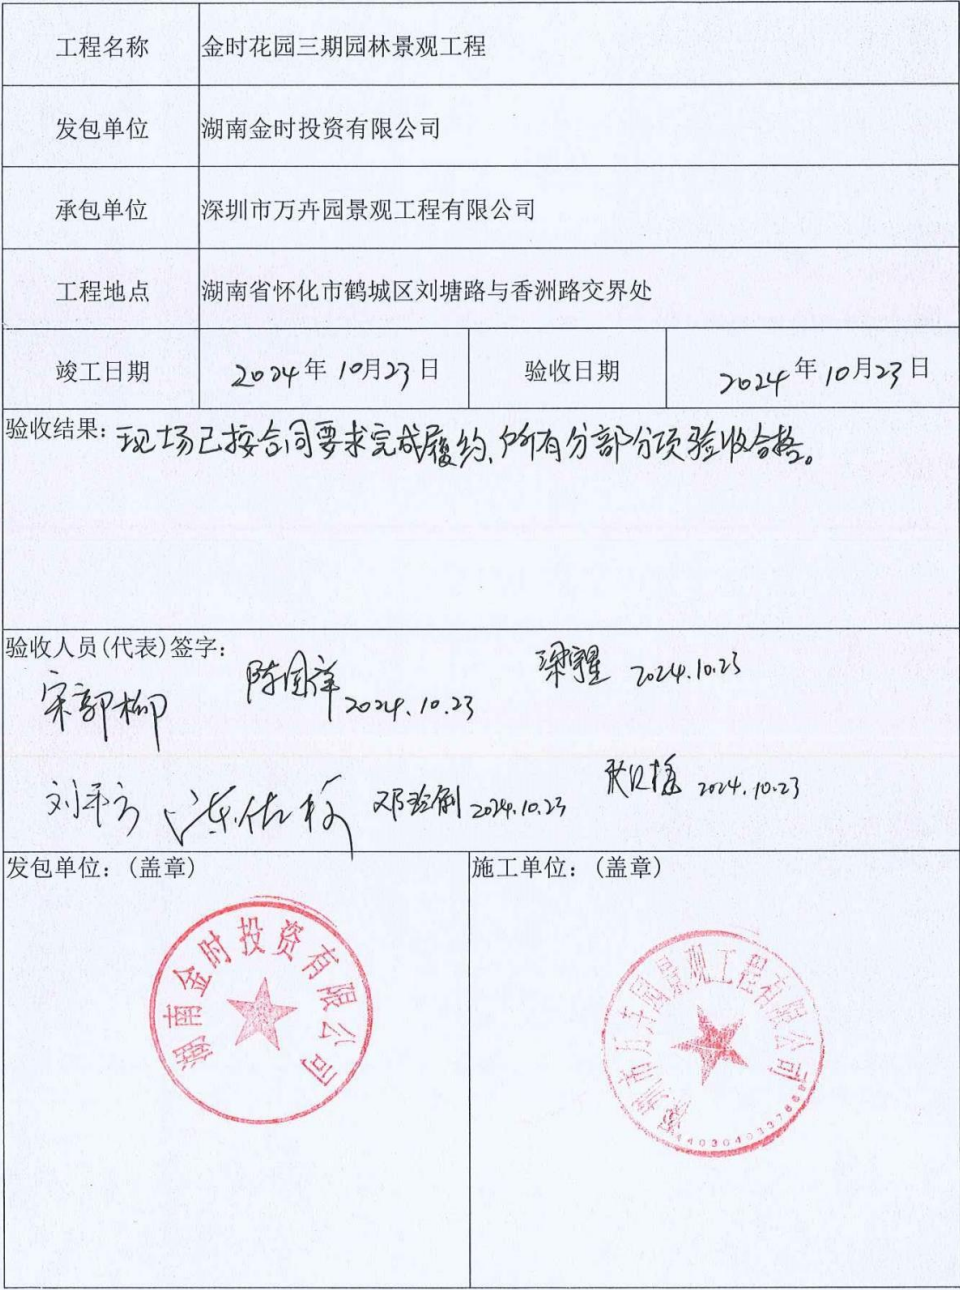 工程名称 金时花园三期园林景观工程
发包单位 湖南金时投资有限公司
承包单位 深圳市万卉园景观工程有限公司
工程地点 湖南省怀化市鹤城区刘塘路与香洲路交界处
竣工日期 2024年10月23日 验收日期 2024年10月23日
验收结果: 现场已按合同要求完成履约、所有分部分项验收合格。
验收人员(代表)签字:
宋郭柳 陈国祥 2024.10.23 2024.10.23
2024.10.23 2024.10.23
发包单位: (盖章) 施工单位: (盖章)
湖南金时投资有限公司
深圳市万卉园景观工程有限公司